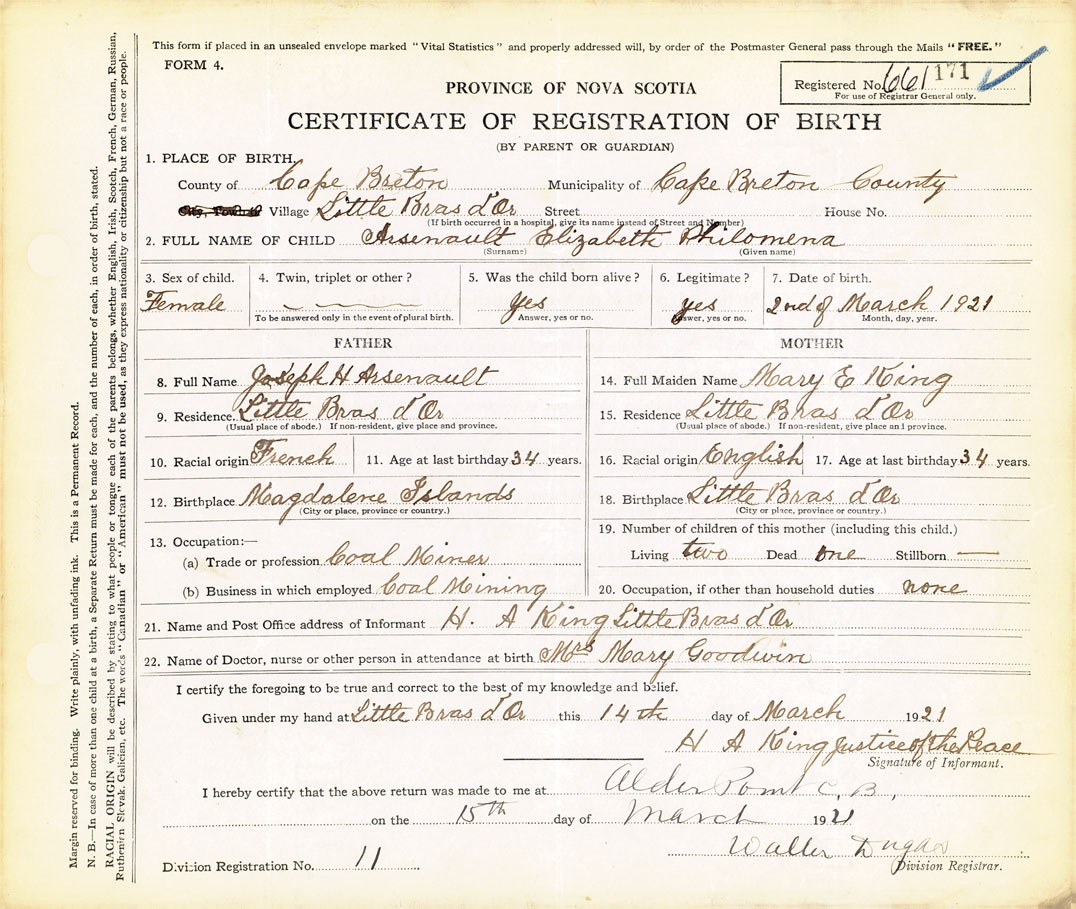 This form if placed in an unsealed envelope marked "Vital Statistics" and properly addressed will, by order of the Postmaster General pass through the Mails "FREE."
FORM 4.
Registered No. 661 171
For use of Registrar General only.
PROVINCE OF NOVA SCOTIA
CERTIFICATE OF REGISTRATION OF BIRTH
(BY PARENT OR GUARDIAN)
1. PLACE OF BIRTH,
County of Cape Breton Municipality of Cape Breton County
Village Little Bras d'Or Street House No.
(If birth occurred in a hospital, give its name instead of Street and Number)
2. FULL NAME OF CHILD Arsenault Elizabeth Philomena
(Surname) (Given name)
3. Sex of child. 4. Twin, triplet or other? 5. Was the child born alive? 6. Legitimate? 7. Date of birth.
Female — yes yes 2nd of March 1921
To be answered only in the event of plural birth. Answer, yes or no. Answer, yes or no. Month, day, year.
FATHER
8. Full Name Joseph H Arsenault
9. Residence. Little Bras d'Or
(Usual place of abode.) If non-resident, give place and province.
10. Racial origin French 11. Age at last birthday 34 years.
12. Birthplace Magdalene Islands
(City or place, province or country.)
13. Occupation:—
(a) Trade or profession Coal Miner
(b) Business in which employed Coal Mining
MOTHER
14. Full Maiden Name Mary E King
15. Residence Little Bras d'Or
(Usual place of abode.) If non-resident, give place an l province.
16. Racial origin English 17. Age at last birthday 34 years.
18. Birthplace Little Bras d'Or
(City or place, province or country.)
19. Number of children of this mother (including this child.)
Living two Dead one Stillborn —
20. Occupation, if other than household duties none
21. Name and Post Office address of Informant H. A King Little Bras d'Or
22. Name of Doctor, nurse or other person in attendance at birth Mrs Mary Goodwin
I certify the foregoing to be true and correct to the best of my knowledge and belief.
Given under my hand at Little Bras d'Or this 14th day of March 1921
H A King Justice of the Peace
Signature of Informant.
I hereby certify that the above return was made to me at Alder Point C. B.,
on the 15th day of March 1921
Walter
Division Registration No. 11 Division Registrar.
Margin reserved for binding. Write plainly, with unfading ink. This is a Permanent Record.
N. B.—In case of more than one child at a birth, a Separate Return must be made for each, and the number of each, in order of birth, stated.
RACIAL ORIGIN will be described by stating to what people or tongue each of the parents belongs, whether English, Irish, Scotch, French, German, Rusian,
Ruthenirn Slovak, Galician, etc. The words "Canadian" or "American" must not be used, as they express nationality or citizenship but not a race or people.